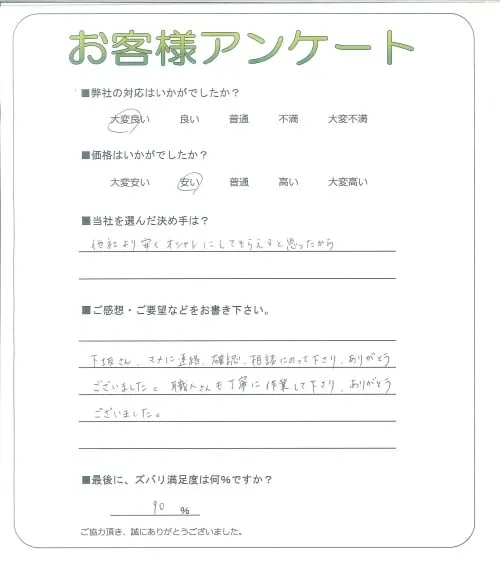 お客様アンケート
■弊社の対応はいかがでしたか?
大変良い 良い 普通 不満 大変不満
■価格はいかがでしたか?
大変安い 安い 普通 高い 大変高い
■当社を選んだ決め手は?
他社より安くオシャレにしてもらえると思ったから
■ご感想・ご要望などをお書き下さい。
下坂さん、マメに連絡、確認、相談にのって下さり、ありがとう
ございました。職人さんも丁寧に作業して下さり、ありがとう
ございました。
■最後に、ズバリ満足度は何%ですか?
90 %
ご協力頂き、誠にありがとうございました。